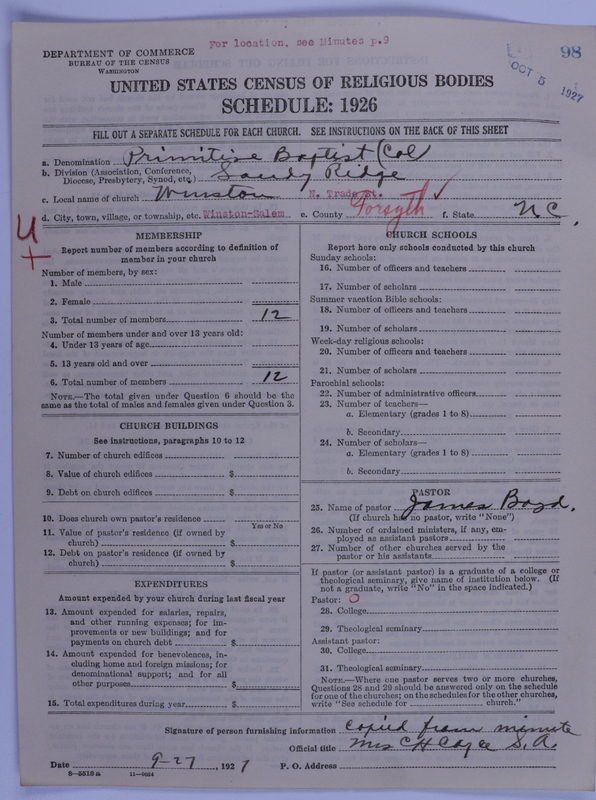 For location, see Minutes p.9
98
DEPARTMENT OF COMMERCE
BUREAU OF THE CENSUS
WASHINGTON
OCT 5 1927
UNITED STATES CENSUS OF RELIGIOUS BODIES
SCHEDULE: 1926
FILL OUT A SEPARATE SCHEDULE FOR EACH CHURCH. SEE INSTRUCTIONS ON THE BACK OF THIS SHEET
a. Denomination Primitive Baptist (Col
b. Division (Association, Conference, Diocese, Presbytery, Synod, etc.) Sandy Ridge
c. Local name of church Winston N. Trade St.
d. City, town, village, or township, etc. Winston-Salem e. County Forsyth f. State N C.
MEMBERSHIP
Report number of members according to definition of
member in your church
Number of members, by sex:
1. Male
2. Female
3. Total number of members 12
Number of members under and over 13 years old:
4. Under 13 years of age
5. 13 years old and over
6. Total number of members 12
NOTE.—The total given under Question 6 should be the
same as the total of males and females given under Question 3.
CHURCH BUILDINGS
See instructions, paragraphs 10 to 12
7. Number of church edifices
8. Value of church edifices $
9. Debt on church edifices $
10. Does church own pastor's residence
Yes or No
11. Value of pastor's residence (if owned by
church) $
12. Debt on pastor's residence (if owned by
church) $
EXPENDITURES
Amount expended by your church during last fiscal year
13. Amount expended for salaries, repairs,
and other running expenses; for im-
provements or new buildings; and for
payments on church debt $
14. Amount expended for benevolences, in-
cluding home and foreign missions; for
denominational support; and for all
other purposes $
15. Total expenditures during year $
CHURCH SCHOOLS
Report here only schools conducted by this church
Sunday schools:
16. Number of officers and teachers
17. Number of scholars
Summer vacation Bible schools:
18. Number of officers and teachers
19. Number of scholars
Week-day religious schools:
20. Number of officers and teachers
21. Number of scholars
Parochial schools:
22. Number of administrative officers
23. Number of teachers—
a. Elementary (grades 1 to 8)
b. Secondary
24. Number of scholars—
a. Elementary (grades 1 to 8)
b. Secondary
PASTOR
25. Name of pastor James Boyd.
(If church has no pastor, write "None")
26. Number of ordained ministers, if any, em-
ployed as assistant pastors
27. Number of other churches served by the
pastor or his assistants
If pastor (or assistant pastor) is a graduate of a college or
theological seminary, give name of institution below. (If
not a graduate, write "No" in the space indicated.)
Pastor: O
28. College
29. Theological seminary
Assistant pastor:
30. College
31. Theological seminary
NOTE.—Where one pastor serves two or more churches,
Questions 28 and 29 should be answered only on the schedule
for one of the churches; on the schedules for the other churches,
write "See schedule for church."
Signature of person furnishing information Copied from minute
Official title Mrs C H Cayce S. A.
Date 9-27, 1927 P. O. Address
8-5518 a 11-9054